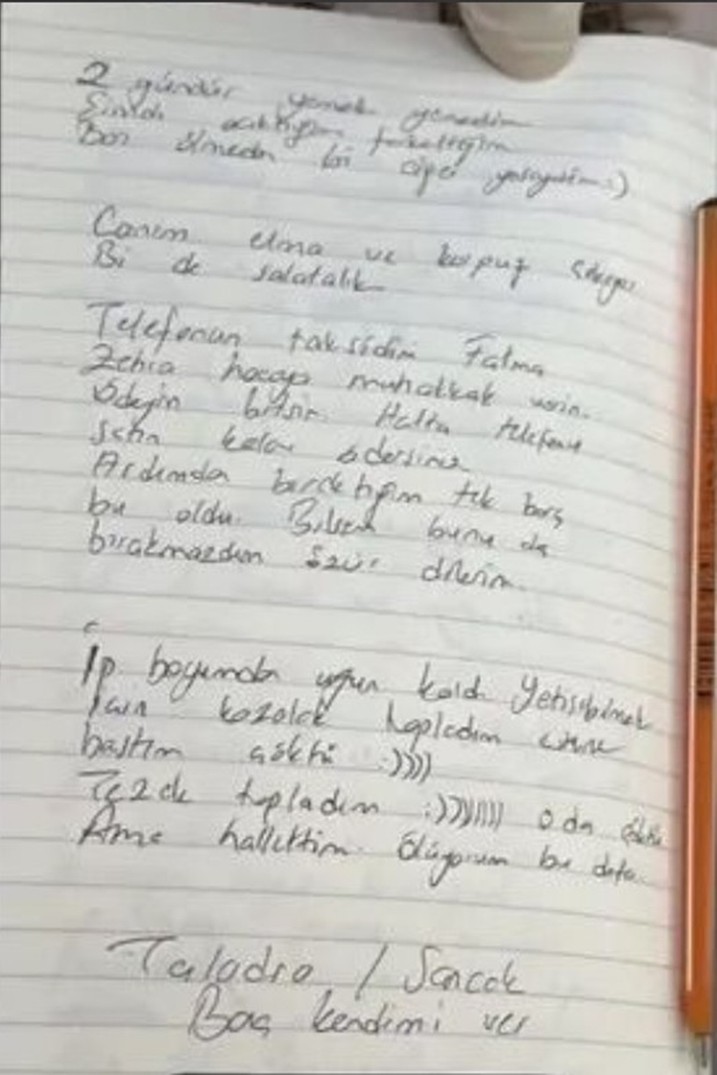 2 gündür yemek yemedim
açlığım tokluğum
Ben ölmeden bi çiçeğ
Canım elma ve karpuz çekiyor
Bi de salatalık
Telefonun taksidini Fatma
Zehra hocaya muhakkak verin.
Ödeyin bitsin. Hatta telefonu
satın kolay ödersiniz
Ardımda bıraktığım tek borç
bu oldu. Bilsem bunu da
bırakmazdım özür dilerim.
İp boyumdan uzun kaldı. Yetişebilmek
için kozalak topladım üstüne
bastım çöktü :))))
Tezek topladım :)))))))) o da çöktü
Ama hallettim. Ölüyorum bu defa.
Taladro / Sancak
Bana kendimi ver